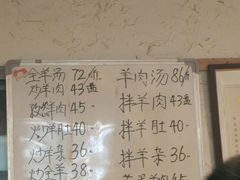 全羊汤 72/斤
炒羊肉 43盘
孜然羊肉 45-
炒羊肚 40-
炒羊杂 36-
炒全羊 38
羊肉汤 86斤
拌羊肉 43盘
拌羊肚 40-
拌羊杂 36-